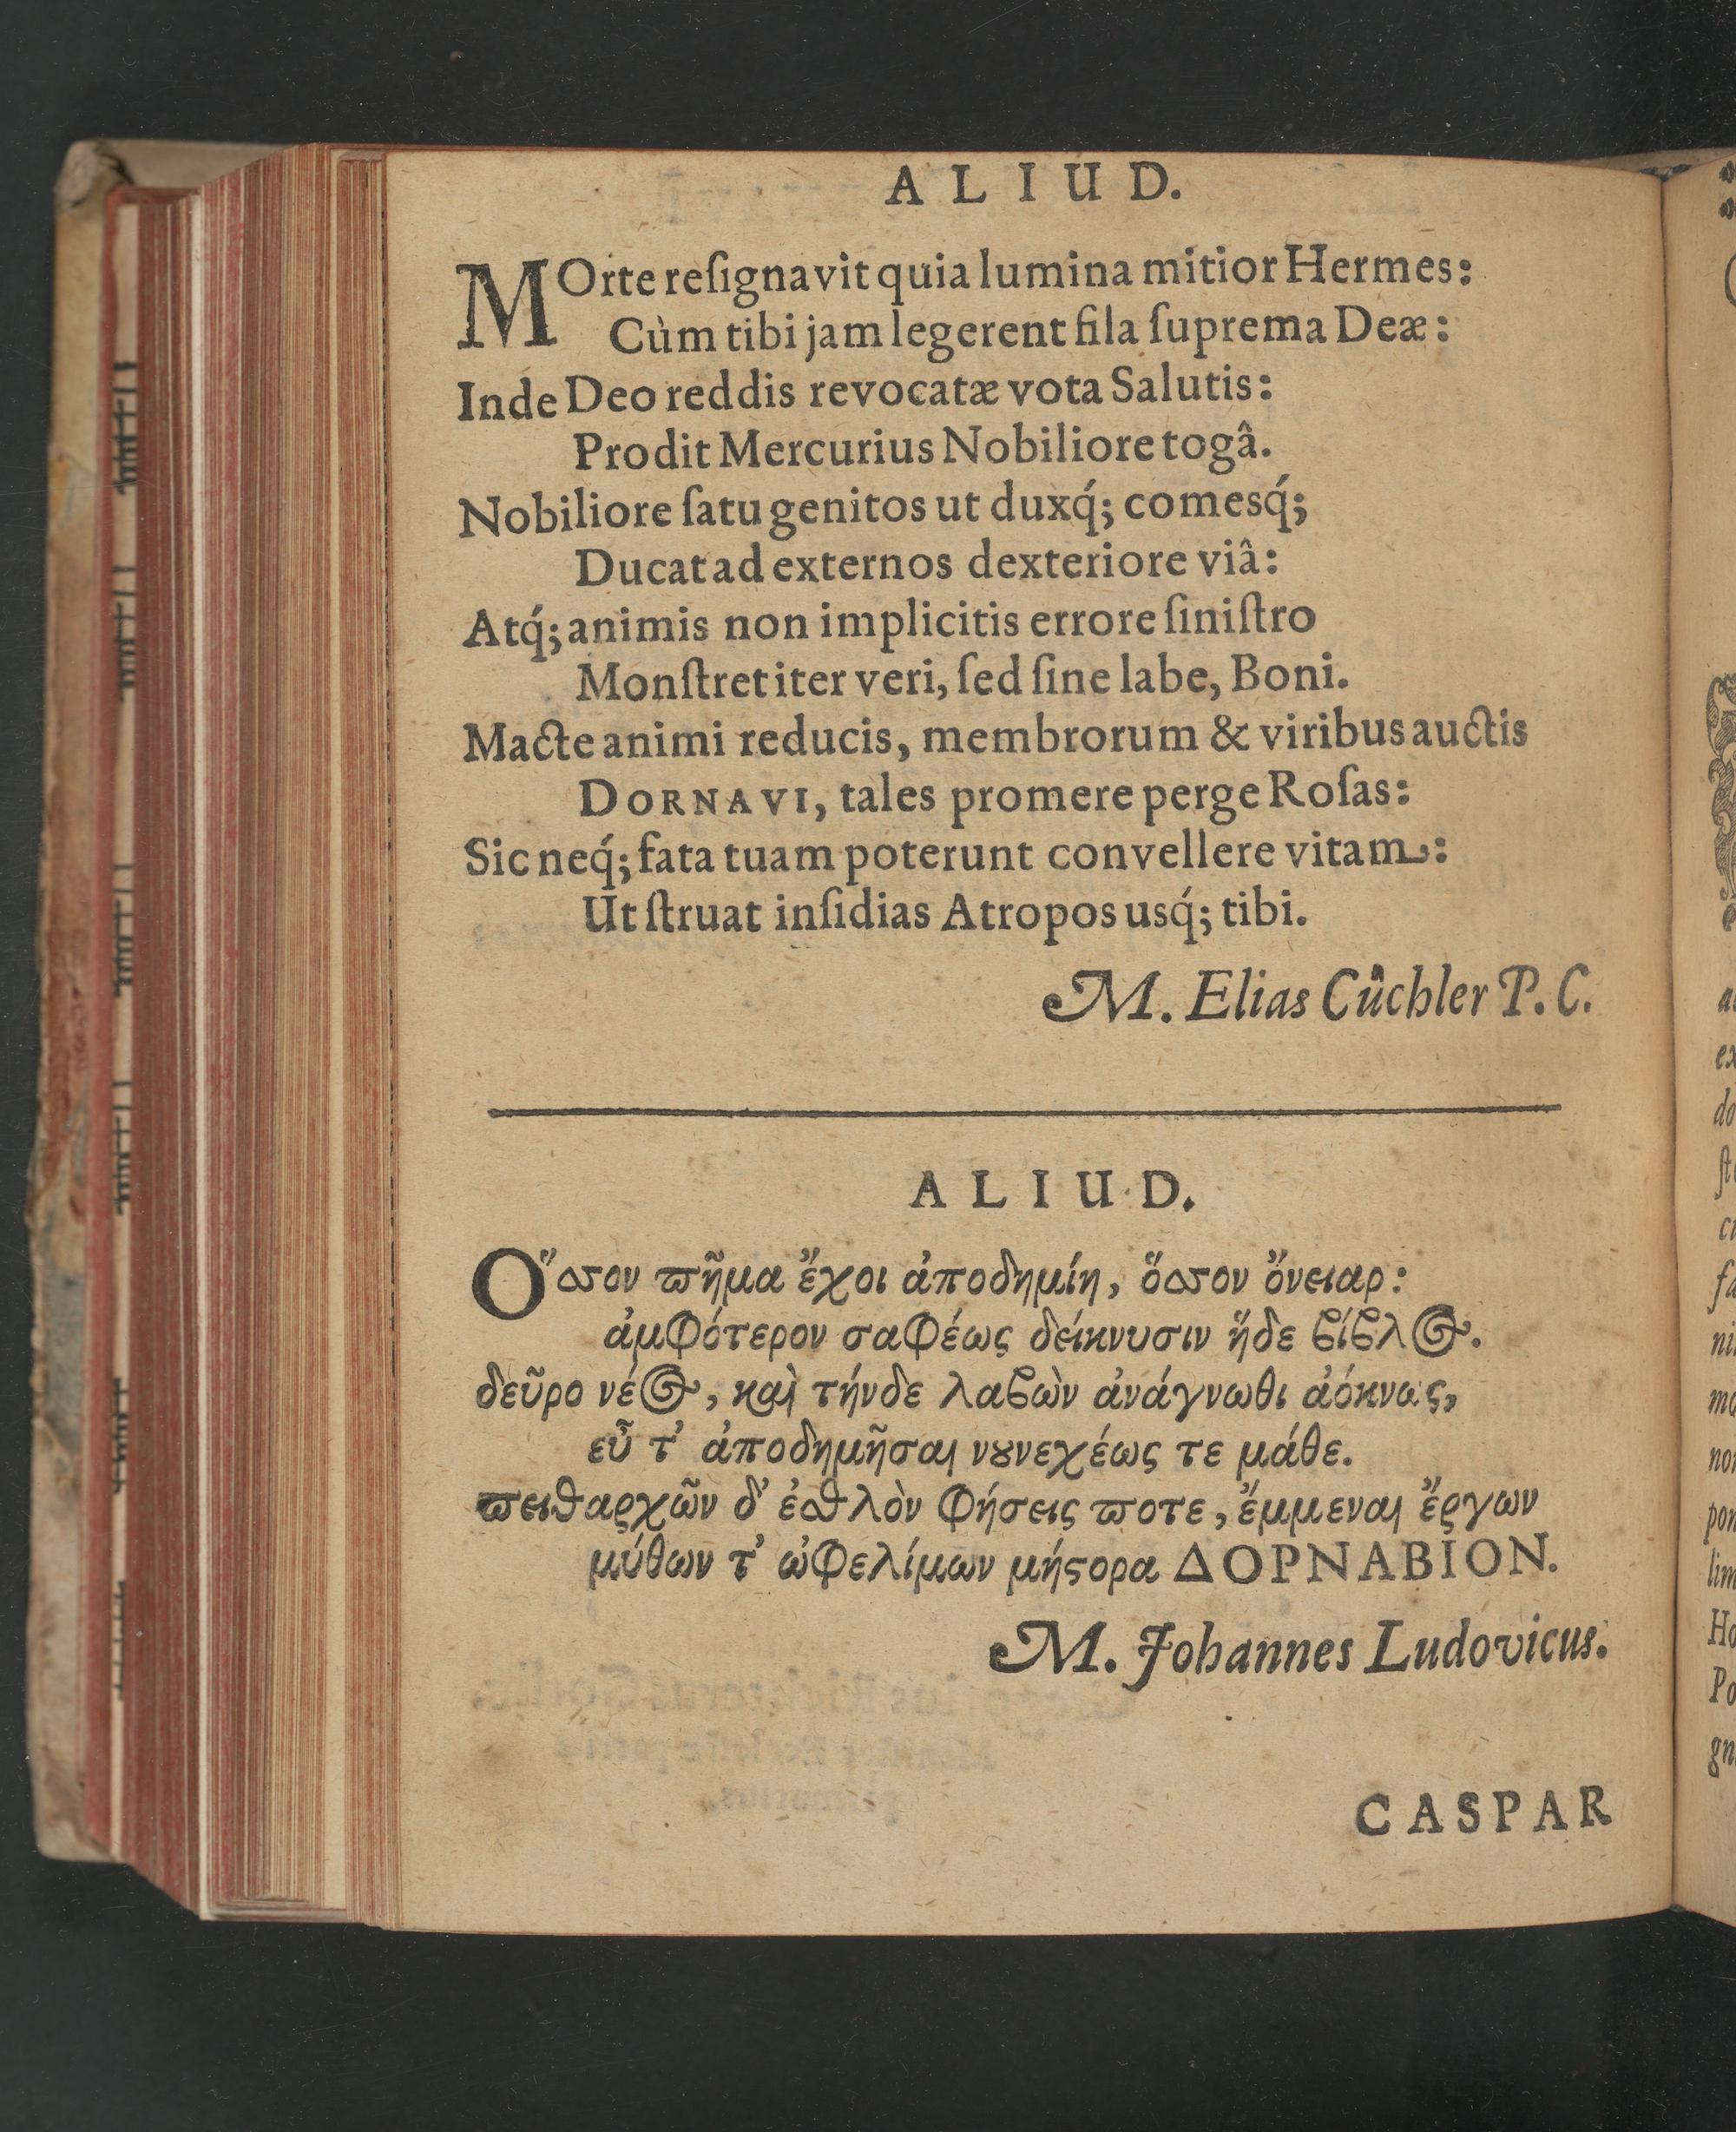 ALIUD.
MOrte reſignavit quia lumina mitior Hermes:
Cùm tibi jam legerent fila ſuprema Deæ:
Inde Deo reddis revocatæ vota Salutis:
Prodit Mercurius Nobiliore togâ.
Nobiliore ſatu genitos ut duxq́; comesq́;
Ducat ad externos dexteriore viâ:
Atq́; animis non implicitis errore ſiniſtro
Monſtret iter veri, ſed ſine labe, Boni.
Macte animi reducis, membrorum & viribus auctis
DORNAVI, tales promere perge Roſas:
Sic neq́; fata tuam poterunt convellere vitam:
Ut ſtruat inſidias Atropos usq́; tibi.
M. Elias Cůchler P. C.
ALIUD.
Ὅσσον πῆμα ἔχοι ἀποδημίη, ὅσσον ὄνειαρ:
ἀμφότερον σαφέως δείκνυσιν ἥδε βίβλος.
δεῦρο νέος, καὶ τήνδε λαβὼν ἀνάγνωθι ἀόκνως,
εὖ τ' ἀποδημῆσαι νουνεχέως τε μάθε.
πειθαρχῶν δ' ἐσθλὸν φήσεις ποτε, ἔμμεναι ἔργων
μύθων τ' ὠφελίμων μήστορα ΔΟΡΝΑΒΙΟΝ.
M. Johannes Ludovicus.
CASPAR